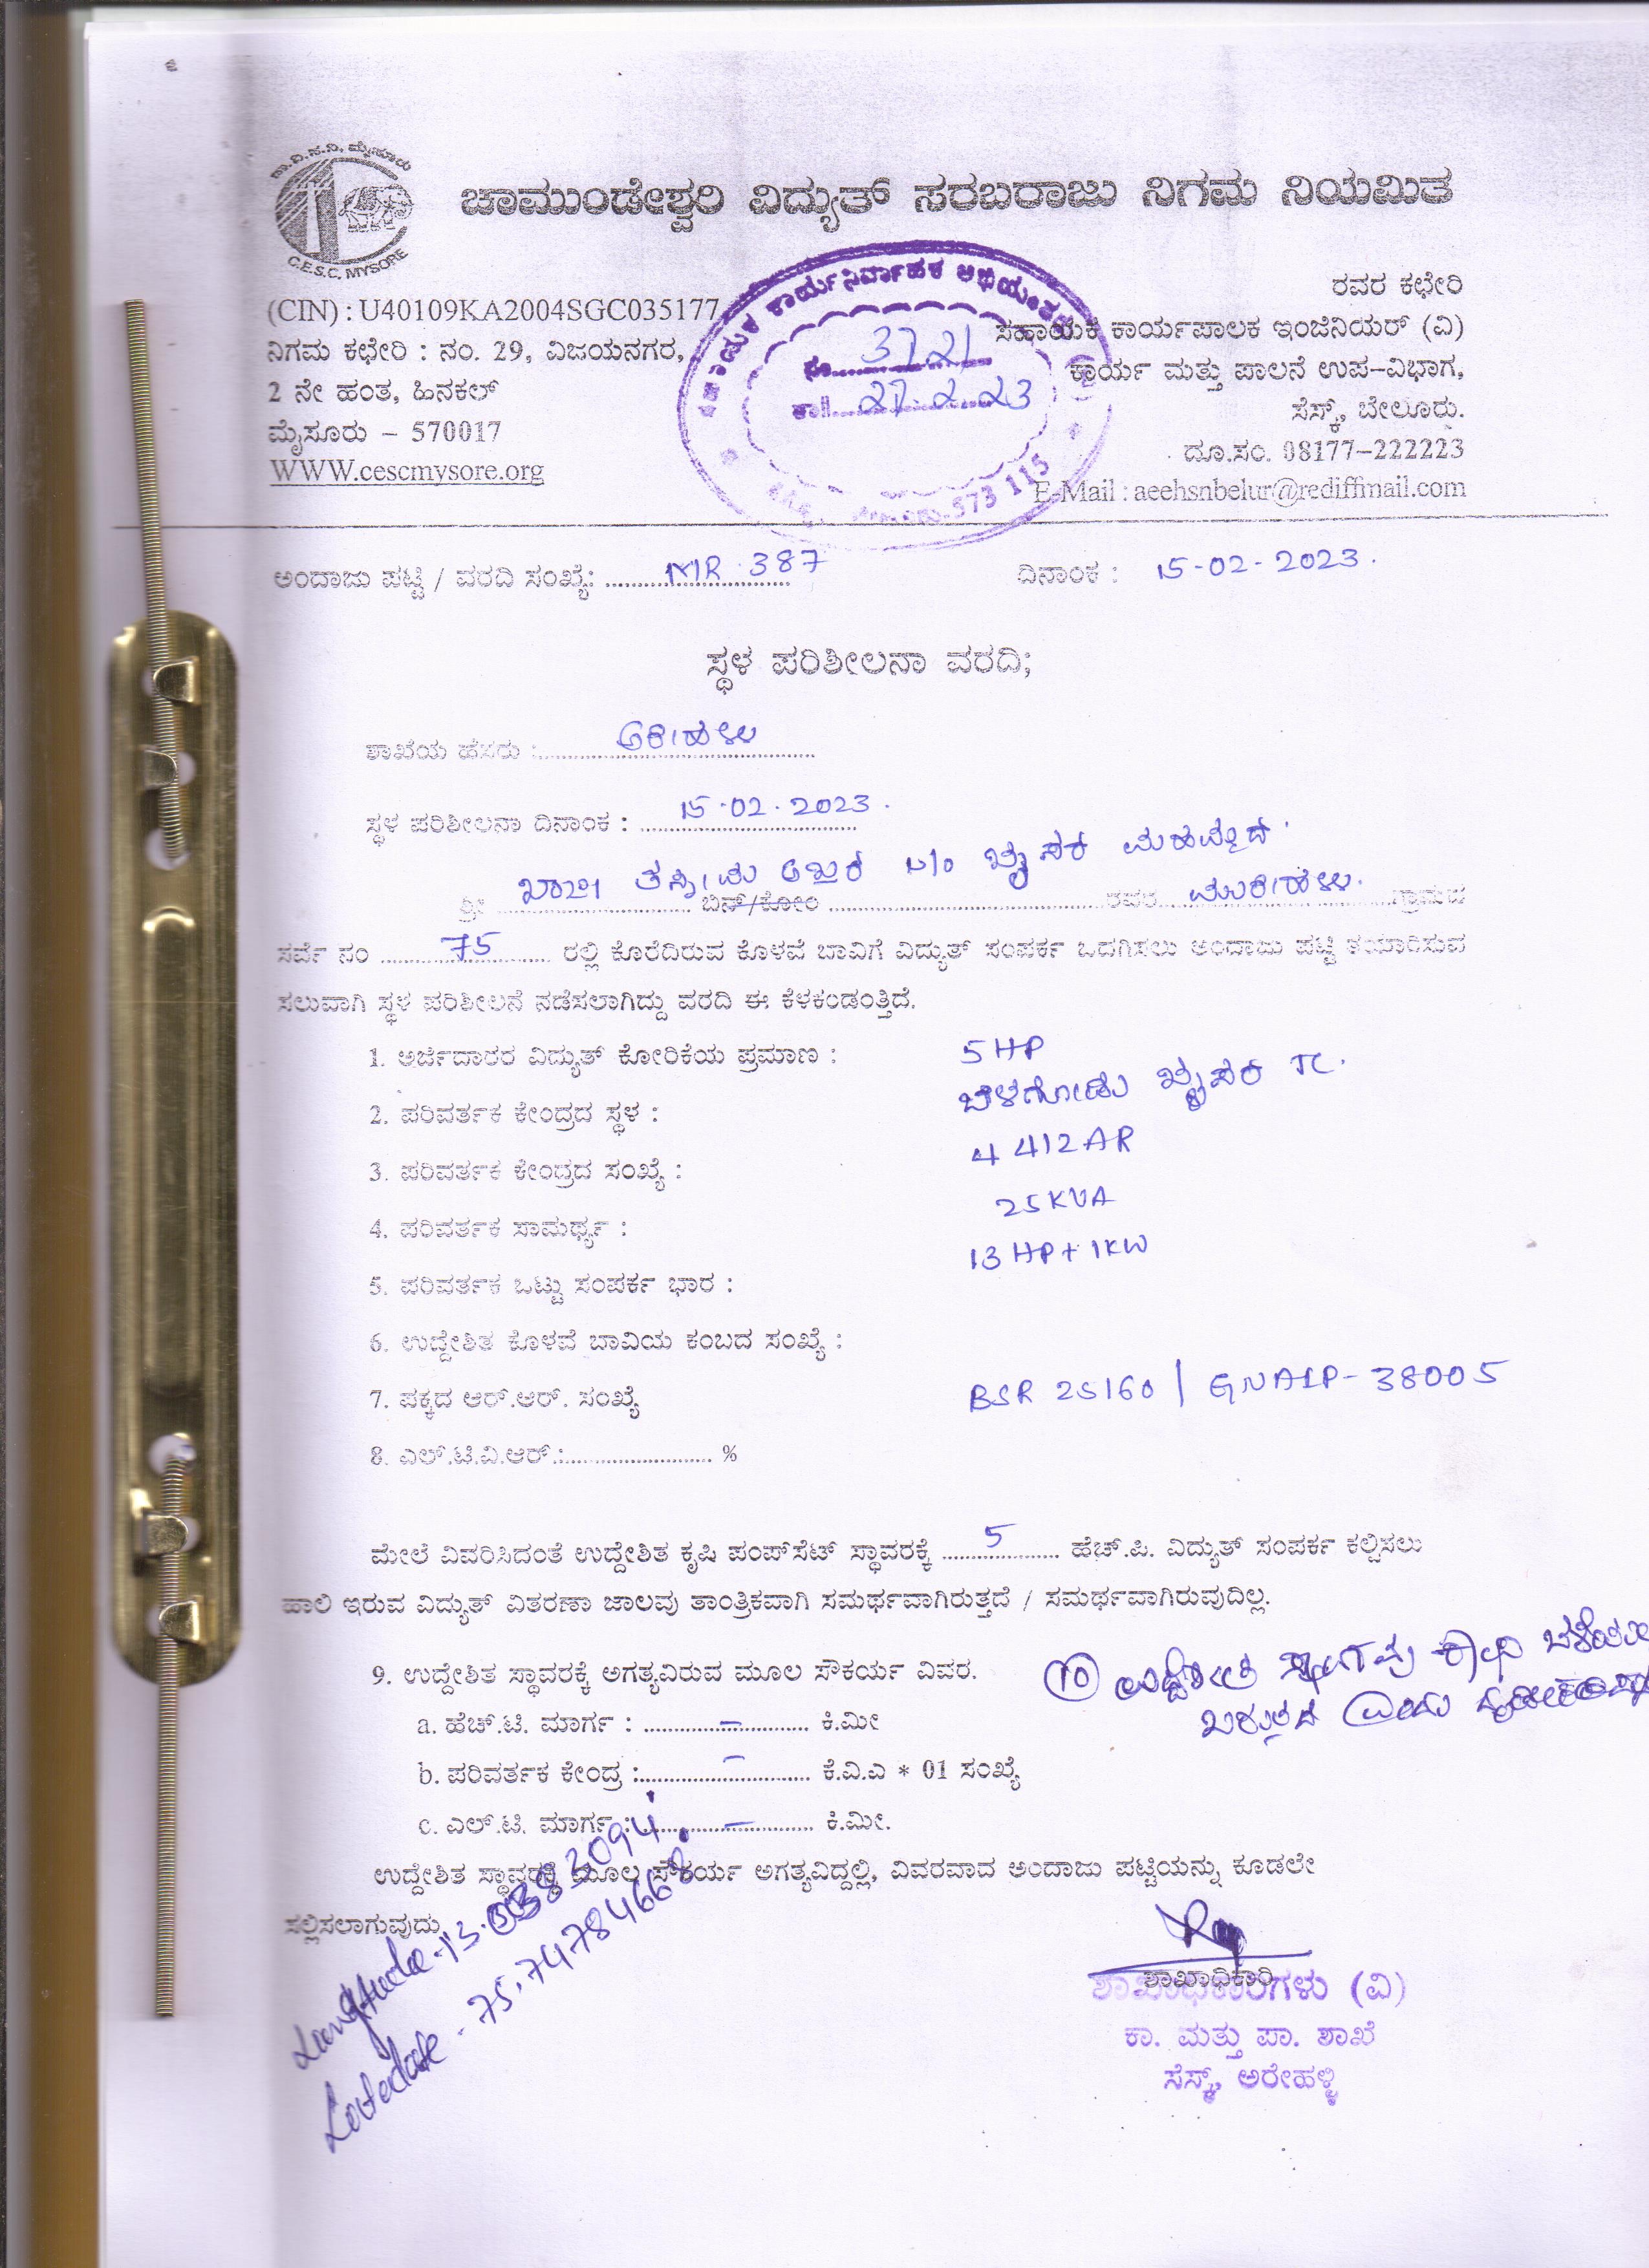 ಚಾ.ವಿ.ಸ.ನಿ, ಮೈಸೂರು
C.E.S.C. MYSORE
ಚಾಮುಂಡೇಶ್ವರಿ ವಿದ್ಯುತ್ ಸರಬರಾಜು ನಿಗಮ ನಿಯಮಿತ
(CIN) : U40109KA2004SGC035177
ನಿಗಮ ಕಛೇರಿ : ನಂ. 29, ವಿಜಯನಗರ,
2 ನೇ ಹಂತ, ಹಿನಕಲ್
ಮೈಸೂರು – 570017
WWW.cescmysore.org
ಕಾರ್ಯನಿರ್ವಾಹಕ ಅಭಿಯಂತರ
ನಂ. 3721
ತಾ॥ 27.2.23
573 115
ರವರ ಕಛೇರಿ
ಸಹಾಯಕ ಕಾರ್ಯಪಾಲಕ ಇಂಜಿನಿಯರ್ (ವಿ)
ಕಾರ್ಯ ಮತ್ತು ಪಾಲನೆ ಉಪ-ವಿಭಾಗ,
ಸೆಸ್ಕ್, ಬೇಲೂರು.
ದೂ.ಸಂ. 08177-222223
E-Mail : aeehsnbelur@rediffmail.com
ಅಂದಾಜು ಪಟ್ಟಿ / ವರದಿ ಸಂಖ್ಯೆ: MR 387 ದಿನಾಂಕ : 15-02-2023.
ಸ್ಥಳ ಪರಿಶೀಲನಾ ವರದಿ;
ಶಾಖೆಯ ಹೆಸರು : ಅರೇಹಳ್ಳಿ
ಸ್ಥಳ ಪರಿಶೀಲನಾ ದಿನಾಂಕ : 15.02.2023.
ಶ್ರೀ ಬಿನ್/ಕೋಂ ರವರ ಗ್ರಾಮದ
ಸರ್ವೆ ನಂ 75 ರಲ್ಲಿ ಕೊರೆದಿರುವ ಕೊಳವೆ ಬಾವಿಗೆ ವಿದ್ಯುತ್ ಸಂಪರ್ಕ ಒದಗಿಸಲು ಅಂದಾಜು ಪಟ್ಟಿ ತಯಾರಿಸುವ
ಸಲುವಾಗಿ ಸ್ಥಳ ಪರಿಶೀಲನೆ ನಡೆಸಲಾಗಿದ್ದು ವರದಿ ಈ ಕೆಳಕಂಡಂತ್ತಿದೆ.
1. ಅರ್ಜಿದಾರರ ವಿದ್ಯುತ್ ಕೋರಿಕೆಯ ಪ್ರಮಾಣ : 5 HP
2. ಪರಿವರ್ತಕ ಕೇಂದ್ರದ ಸ್ಥಳ : TC.
3. ಪರಿವರ್ತಕ ಕೇಂದ್ರದ ಸಂಖ್ಯೆ : 4412AR
4. ಪರಿವರ್ತಕ ಸಾಮರ್ಥ್ಯ : 25 KVA
5. ಪರಿವರ್ತಕ ಒಟ್ಟು ಸಂಪರ್ಕ ಭಾರ : 13 HP + 1KW
6. ಉದ್ದೇಶಿತ ಕೊಳವೆ ಬಾವಿಯ ಕಂಬದ ಸಂಖ್ಯೆ :
7. ಪಕ್ಕದ ಆರ್.ಆರ್. ಸಂಖ್ಯೆ BSR 25160 / GNAIP-38005
8. ಎಲ್.ಟಿ.ವಿ.ಆರ್.: %
ಮೇಲೆ ವಿವರಿಸಿದಂತೆ ಉದ್ದೇಶಿತ ಕೃಷಿ ಪಂಪ್‌ಸೆಟ್ ಸ್ಥಾವರಕ್ಕೆ 5 ಹೆಚ್.ಪಿ. ವಿದ್ಯುತ್ ಸಂಪರ್ಕ ಕಲ್ಪಿಸಲು
ಹಾಲಿ ಇರುವ ವಿದ್ಯುತ್ ವಿತರಣಾ ಜಾಲವು ತಾಂತ್ರಿಕವಾಗಿ ಸಮರ್ಥವಾಗಿರುತ್ತದೆ / ಸಮರ್ಥವಾಗಿರುವುದಿಲ್ಲ.
9. ಉದ್ದೇಶಿತ ಸ್ಥಾವರಕ್ಕೆ ಅಗತ್ಯವಿರುವ ಮೂಲ ಸೌಕರ್ಯ ವಿವರ.
a. ಹೆಚ್.ಟಿ. ಮಾರ್ಗ : – ಕಿ.ಮೀ
b. ಪರಿವರ್ತಕ ಕೇಂದ್ರ : – ಕೆ.ವಿ.ಎ * 01 ಸಂಖ್ಯೆ
c. ಎಲ್.ಟಿ. ಮಾರ್ಗ : – ಕಿ.ಮೀ.
10
ಉದ್ದೇಶಿತ ಸ್ಥಾವರಕ್ಕೆ ಮೂಲ ಸೌಕರ್ಯ ಅಗತ್ಯವಿದ್ದಲ್ಲಿ, ವಿವರವಾದ ಅಂದಾಜು ಪಟ್ಟಿಯನ್ನು ಕೂಡಲೇ
ಸಲ್ಲಿಸಲಾಗುವುದು.
75.74784668
ಶಾಖಾಧಿಕಾರಿ
ಶಾಖಾಧಿಕಾರಿಗಳು (ವಿ)
ಕಾ. ಮತ್ತು ಪಾ. ಶಾಖೆ
ಸೆಸ್ಕ್, ಅರೇಹಳ್ಳಿ